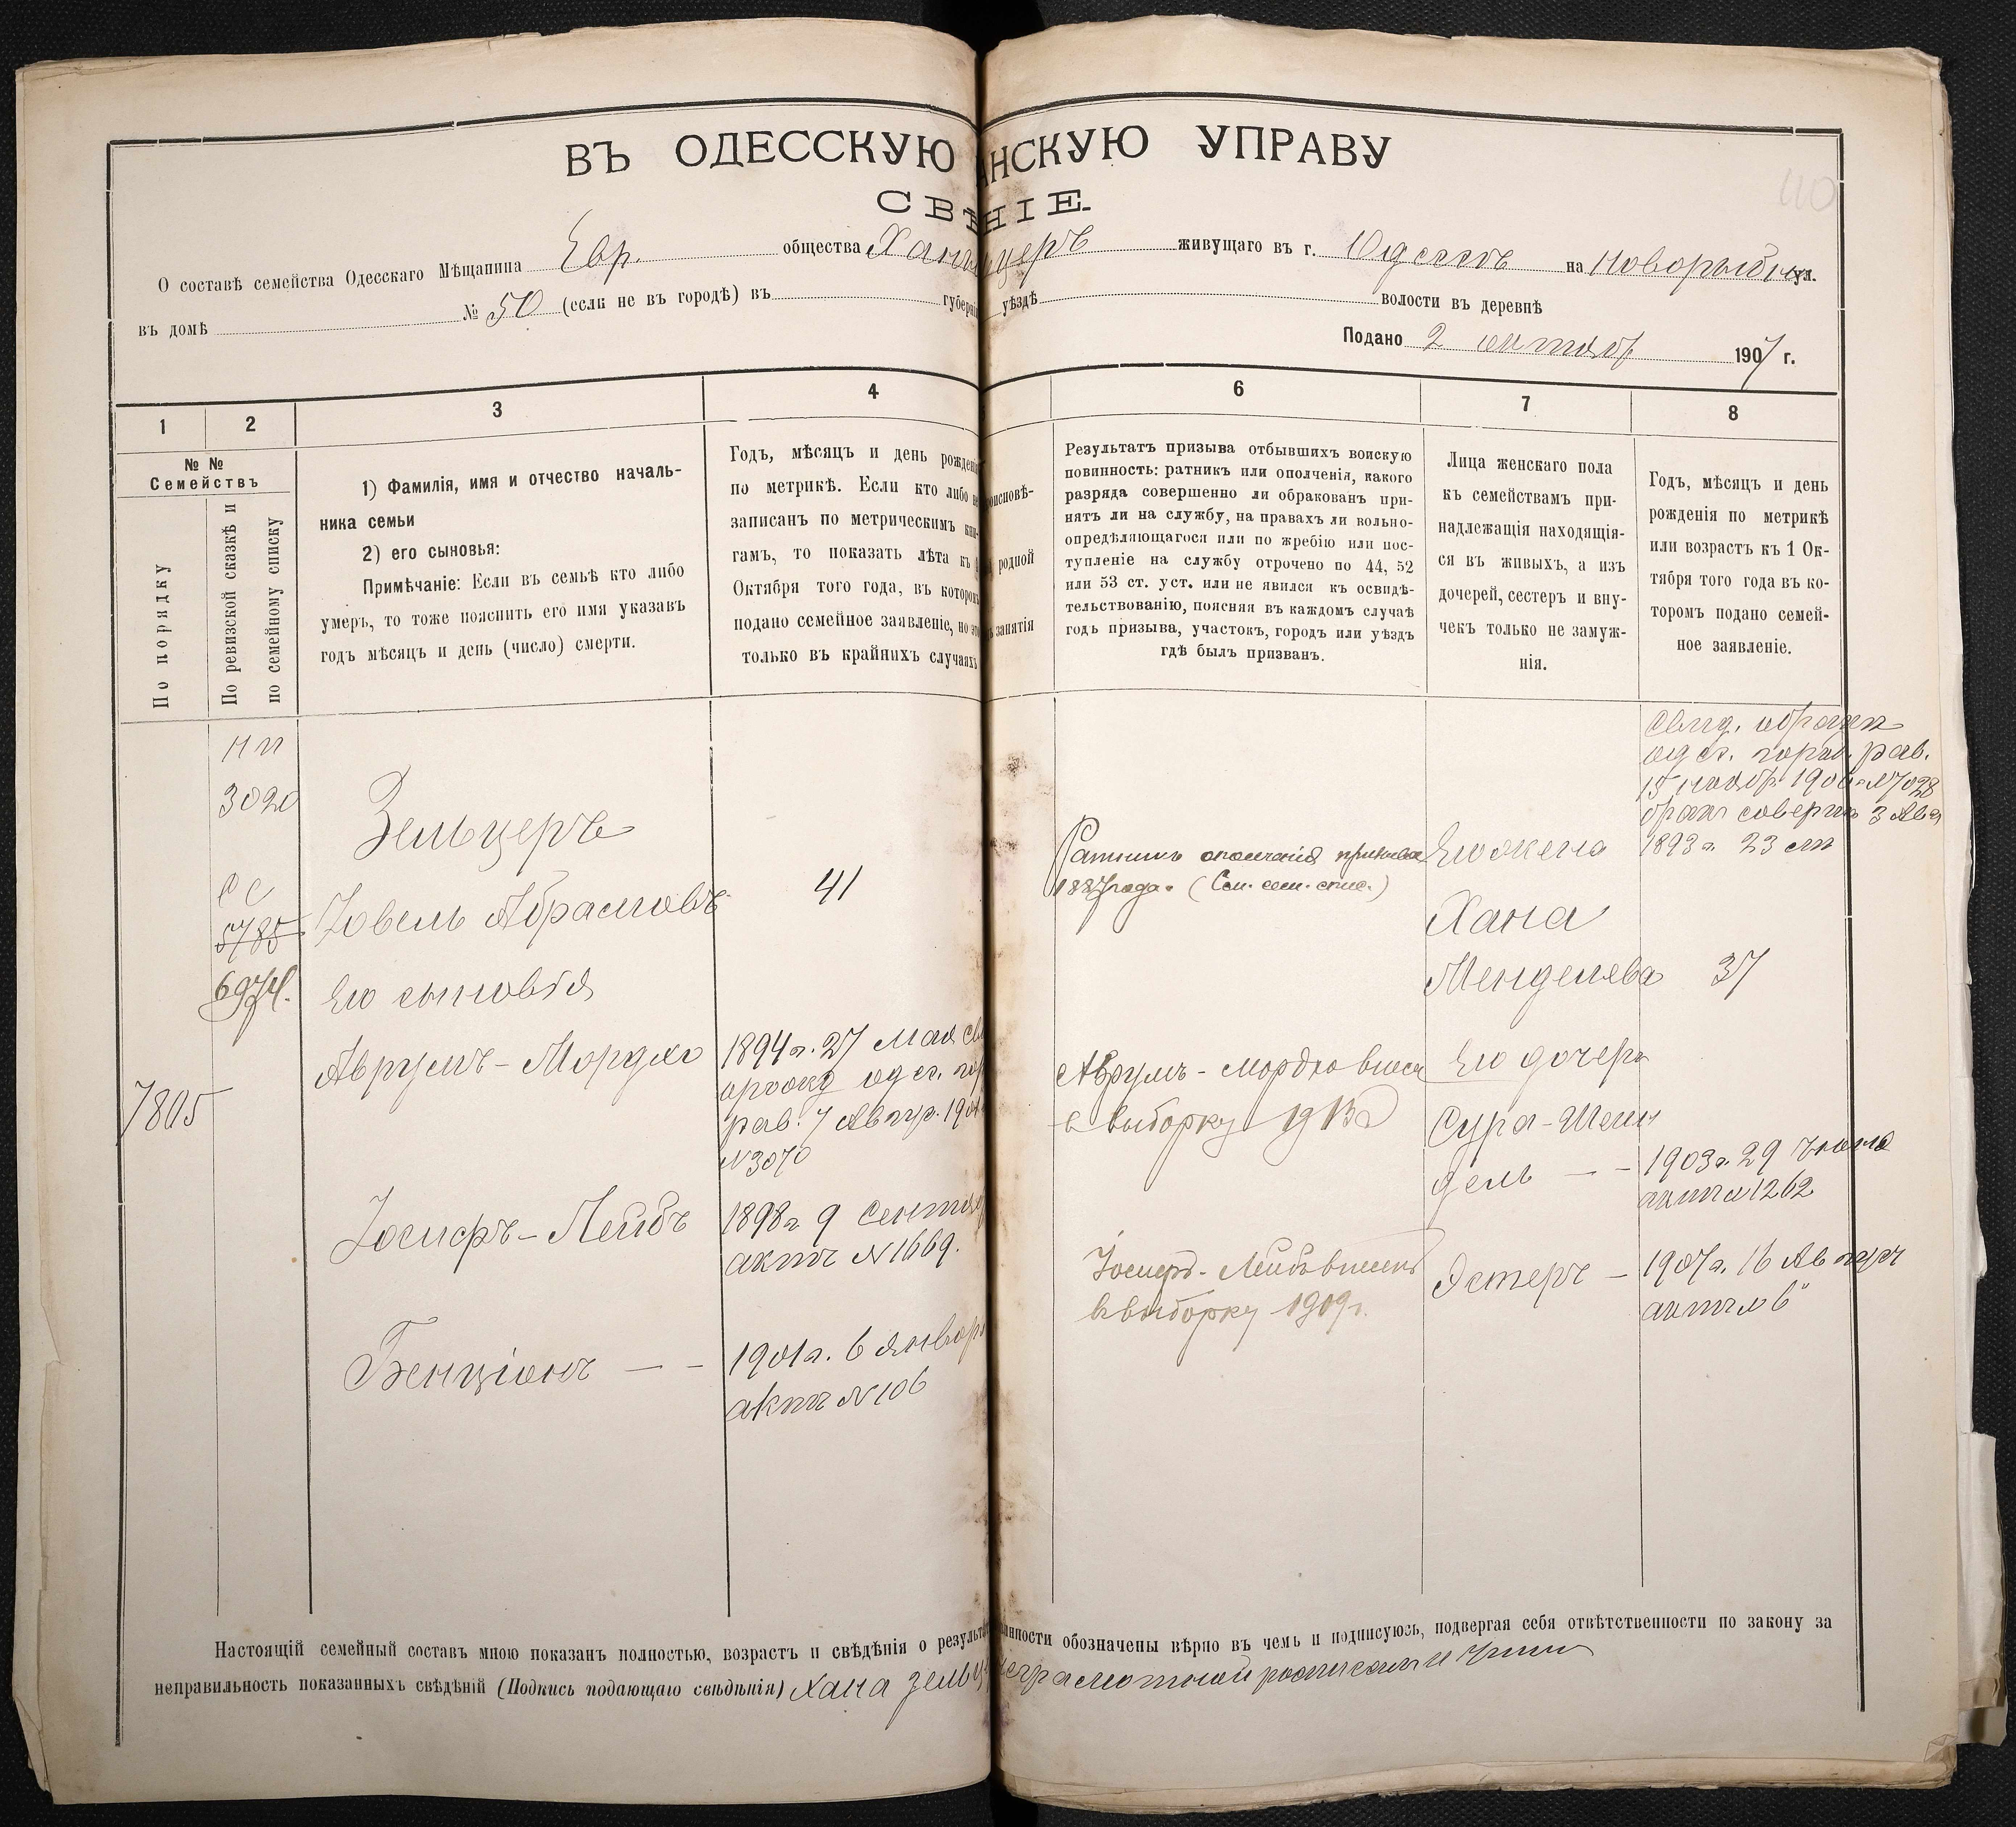 ВЪ ОДЕССКУЮ АНСКУЮ УПРАВУ
СВѢ НІЕ.
110
О составѣ семейства Одесскаго Мѣщанина Евр. общества Хан церъ живущаго въ г. Одессѣ на Новорыбн ул.
въ домѣ № 50 (если не въ городѣ) въ губерніи уѣздѣ волости въ деревнѣ
Подано 2 октяб 1907 г.
1 2 3 4 6 7 8
№ №
Семействъ
По порядку
По ревизской сказкѣ и
по семейному списку
1) Фамилія, имя и отчество началь-
ника семьи
2) его сыновья:
Примѣчаніе: Если въ семьѣ кто либо
умеръ, то тоже пояснить его имя указавъ
годъ мѣсяцъ и день (число) смерти.
Годъ, мѣсяцъ и день рожденія
по метрикѣ. Если кто либо не
записанъ по метрическимъ кни-
гамъ, то показать лѣта къ
Октября того года, въ которомъ
подано семейное заявленіе, но это
только въ крайнихъ случаяхъ
роисповѣ-
родной
занятія
Результатъ призыва отбывшихъ воискую
повинность: ратникъ или ополченія, какого
разряда совершенно ли обракованъ при-
нятъ ли на службу, на правахъ ли вольно-
опредѣляющагося или по жребію или пос-
тупленіе на службу отрочено по 44, 52
или 53 ст. уст. или не явился къ освидѣ-
тельствованію, поясняя въ каждомъ случаѣ
годъ призыва, участокъ, городъ или уѣздъ
гдѣ былъ призванъ.
Лица женскаго пола
къ семействамъ при-
надлежащія находящія-
ся въ живыхъ, а изъ
дочерей, сестеръ и вну-
чекъ только не замуж-
нія.
Годъ, мѣсяцъ и день
рожденія по метрикѣ
или возрастъ къ 1 Ок-
тября того года въ ко-
торомъ подано семей-
ное заявленіе.
3020
5785
6974.
7805
Зельцеръ
Іовель Абрамовъ 41
Его сыновья
Аврумъ-Мордко
1894 г. 27 Мая св
одес. гор
рав. 7 Авгус. 190
№ 3070
Іосифъ-Лейбъ
1898 г 9 Сентяб
актъ № 1669.
Бенціонъ — —
1901 г. 6 Январ
актъ № 106
Ратникъ ополченія призыва
1887 года. (См. сем. спис.)
Аврумъ-Мордко внесен
в выборку 1913 г
Іосифъ-Лейбъ внесенъ
в выборку 1919 г.
Его жена
Хана
Менделева 37
Его дочери
Сура-Шейн
дель — —
1903 г. 29 Іюля
актъ № 1262
Эстеръ —
1907 г. 16 Август
актъ № 6
одес. рав.
15 Нояб. 1906 г. № 7028
бракъ соверш 3 Авг
1893 г. 23 лѣт
Настоящій семейный составъ мною показанъ полностью, возрастъ и свѣдѣнія о результат инности обозначены вѣрно въ чемъ и подписуюсь, подвергая себя отвѣтственности по закону за
неправильность показанныхъ свѣдѣній (Подпись подающаго свѣдѣнія) Хана Зельц неграмотной росписался